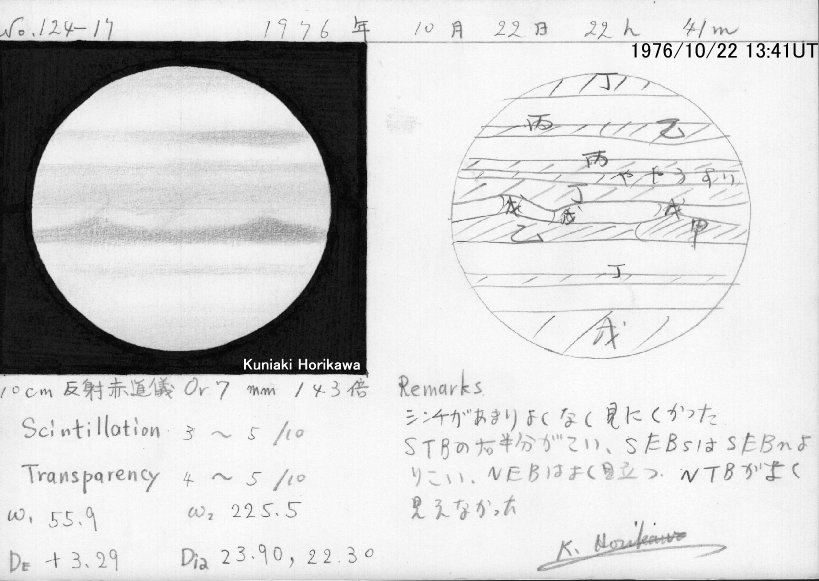 No. 124-17 1976年 10月 22日 22h 41m
1976/10/22 13:41UT
丁
丙 乙
丙
ややうすい
丁
戊 戊 戊
乙 甲
丁
戊
Kuniaki Horikawa
10cm 反射赤道儀 Or7 mm 143倍
Scintillation 3 ~ 5 /10
Transparency 4 ~ 5 /10
ω₁ 55.9 ω₂ 225.5
DE +3.29 Dia 23.90, 22.30
Remarks
シンチがあまりよくなく見にくかった
STBの右半分がこい、SEBsはSEBnよ
りこい、NEBはよく目立つ、NTBがよく
見えなかった
K. Horikawa